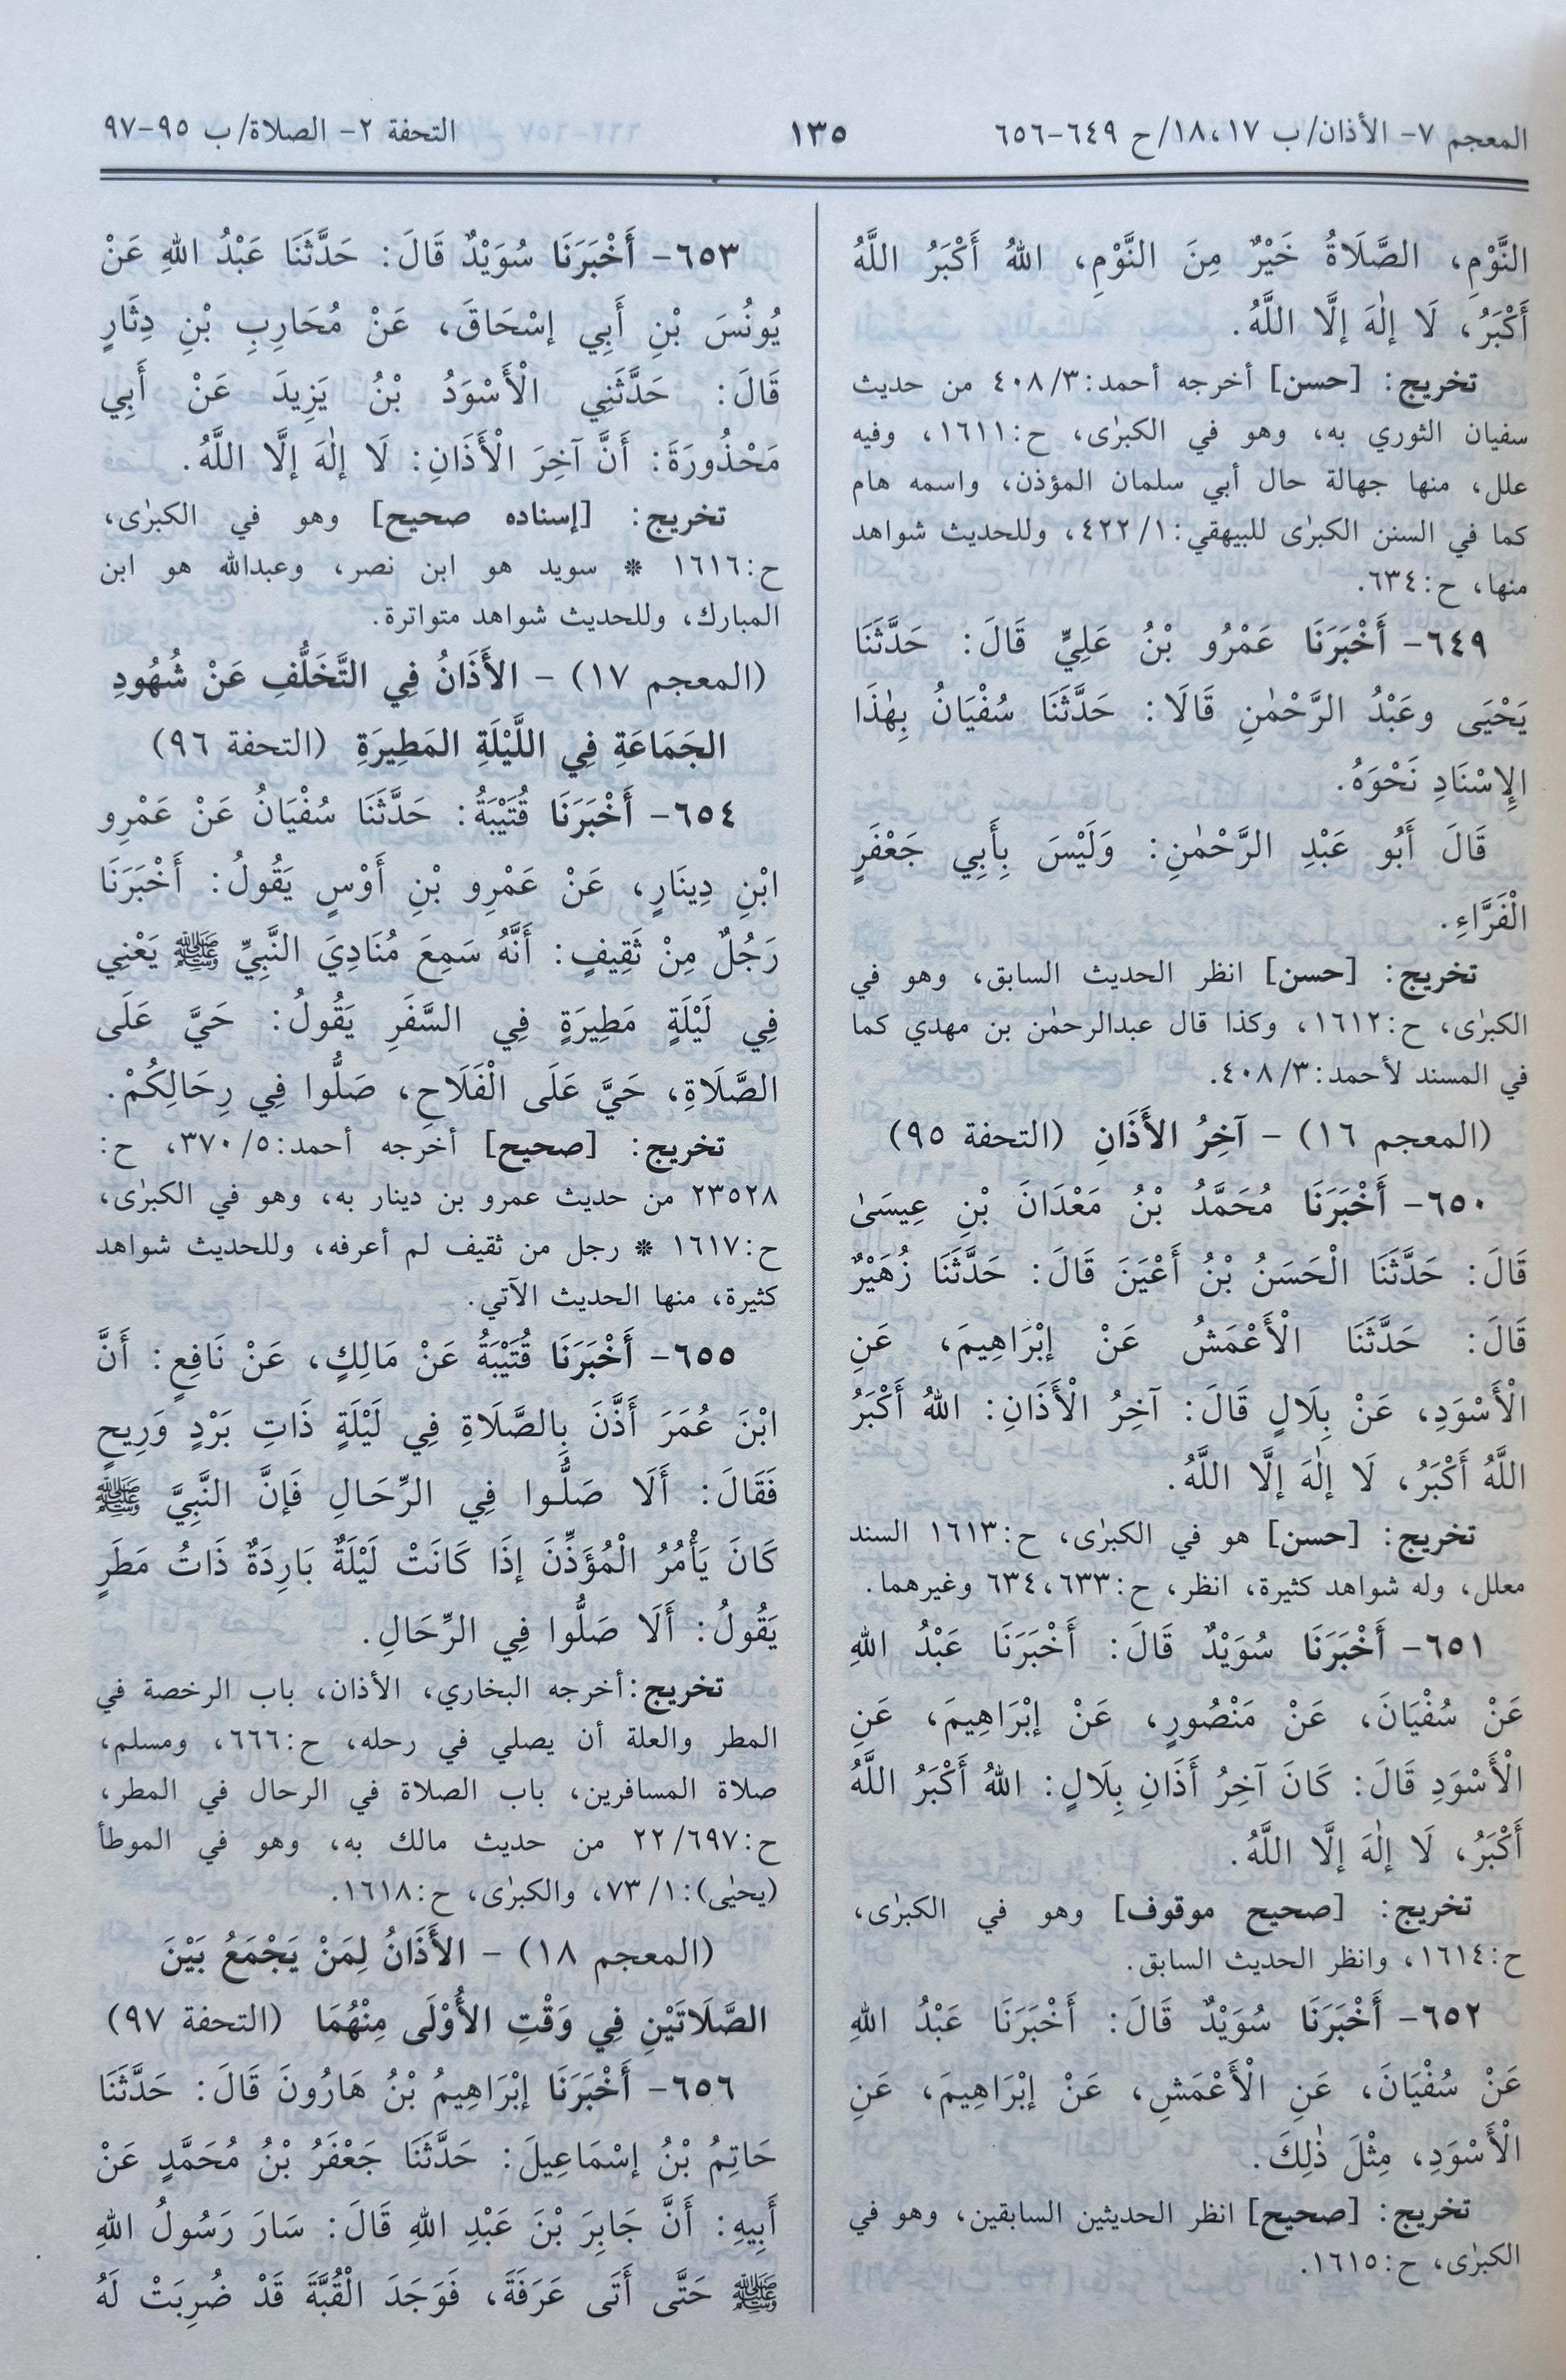 المعجم ٧- الأذان/ ب ١٧،١٨/ح ٦٤٩-٦٥٦
١٣٥
التحفة ٢- الصلاة/ ب ٩٥-٩٧
النَّوْمِ، الصَّلَاةُ خَيْرٌ مِنَ النَّوْمِ، اللهُ أَكْبَرُ اللَّهُ
أَكْبَرُ، لَا إِلٰهَ إلَّا اللَّهُ.
تخريج: [حسن] أخرجه أحمد:٤٠٨/٣ من حديث
سفيان الثوري به، وهو في الكبرٰى، ح:١٦١١، وفيه
علل، منها جهالة حال أبي سلمان المؤذن، واسمه هام
كما في السنن الكبرٰى للبيهقي:٤٢٢/١، وللحديث شواهد
منها، ح:٦٣٤.
٦٤٩- أَخْبَرَنَا عَمْرُو بْنُ عَلِيٍّ قَالَ: حَدَّثَنَا
يَحْيَى وعَبْدُ الرَّحْمٰنِ قَالَا: حَدَّثَنَا سُفْيَانُ بِهٰذَا
الإِسْنَادِ نَحْوَهُ.
قَالَ أَبُو عَبْدِ الرَّحْمٰنِ: وَلَيْسَ بِأَبِي جَعْفَرٍ
الْفَرَّاءِ.
تخريج: [حسن] انظر الحديث السابق، وهو في
الكبرٰى، ح:١٦١٢، وكذا قال عبدالرحمٰن بن مهدي كما
في المسند لأحمد:٤٠٨/٣.
(المعجم ١٦) - آخِرُ الأَذَانِ (التحفة ٩٥)
٦٥٠- أَخْبَرَنَا مُحَمَّدُ بْنُ مَعْدَانَ بْنِ عِيسَىٰ
قَالَ: حَدَّثَنَا الْحَسَنُ بْنُ أَعْيَنَ قَالَ: حَدَّثَنَا زُهَيْرٌ
قَالَ: حَدَّثَنَا الْأَعْمَشُ عَنْ إبْرَاهِيمَ، عَنِ
الْأَسْوَدِ، عَنْ بِلَالٍ قَالَ: آخِرُ الْأَذَانِ: اللهُ أَكْبَرُ
اللَّهُ أَكْبَرُ، لَا إِلٰهَ إلَّا اللَّهُ.
تخريج: [حسن] هو في الكبرٰى، ح:١٦١٣ السند
معلل، وله شواهد كثيرة، انظر، ح:٦٣٤،٦٣٣ وغيرهما.
٦٥١- أَخْبَرَنَا سُوَيْدٌ قَالَ: أَخْبَرَنَا عَبْدُ اللهِ
عَنْ سُفْيَانَ، عَنْ مَنْصُورٍ، عَنْ إبْرَاهِيمَ، عَنِ
الْأَسْوَدِ قَالَ: كَانَ آخِرُ أَذَانِ بِلَالٍ: اللهُ أَكْبَرُ اللَّهُ
أَكْبَرُ، لَا إِلٰهَ إلَّا اللَّهُ.
تخريج: [صحيح موقوف] وهو في الكبرٰى،
ح:١٦١٤، وانظر الحديث السابق.
٦٥٢- أَخْبَرَنَا سُوَيْدٌ قَالَ: أَخْبَرَنَا عَبْدُ اللهِ
عَنْ سُفْيَانَ، عَنِ الْأَعْمَشِ، عَنْ إبْرَاهِيمَ، عَنِ
الْأَسْوَدِ، مِثْلَ ذٰلِكَ.
تخريج: [صحيح] انظر الحديثين السابقين، وهو في
الكبرٰى، ح:١٦١٥.
٦٥٣- أَخْبَرَنَا سُوَيْدٌ قَالَ: حَدَّثَنَا عَبْدُ اللهِ عَنْ
يُونُسَ بْنِ أَبِي إسْحَاقَ، عَنْ مُحَارِبِ بْنِ دِثَارٍ
قَالَ: حَدَّثَنِي الْأَسْوَدُ بْنُ يَزِيدَ عَنْ أَبِي
مَحْذُورَةَ: أَنَّ آخِرَ الْأَذَانِ: لَا إِلٰهَ إلَّا اللَّهُ.
تخريج: [إسناده صحيح] وهو في الكبرٰى،
ح:١٦١٦ * سويد هو ابن نصر، وعبدالله هو ابن
المبارك، وللحديث شواهد متواترة.
(المعجم ١٧) - الأَذَانُ فِي التَّخَلُّفِ عَنْ شُهُودِ
الجَمَاعَةِ فِي اللَّيْلَةِ المَطِيرَةِ (التحفة ٩٦)
٦٥٤- أَخْبَرَنَا قُتَيْبَةُ: حَدَّثَنَا سُفْيَانُ عَنْ عَمْرِو
ابْنِ دِينَارٍ، عَنْ عَمْرِو بْنِ أَوْسٍ يَقُولُ: أَخْبَرَنَا
رَجُلٌ مِنْ ثَقِيفٍ: أَنَّهُ سَمِعَ مُنَادِيَ النَّبِيِّ ﷺ يَعْنِي
فِي لَيْلَةٍ مَطِيرَةٍ فِي السَّفَرِ يَقُولُ: حَيَّ عَلَى
الصَّلَاةِ، حَيَّ عَلَى الْفَلَاحِ، صَلُّوا فِي رِحَالِكُمْ.
تخريج: [صحيح] أخرجه أحمد:٣٧٠/٥، ح:
٢٣٥٢٨ من حديث عمرو بن دينار به، وهو في الكبرٰى،
ح:١٦١٧ * رجل من ثقيف لم أعرفه، وللحديث شواهد
كثيرة، منها الحديث الآتي.
٦٥٥- أَخْبَرَنَا قُتَيْبَةُ عَنْ مَالِكٍ، عَنْ نَافِعٍ: أَنَّ
ابْنَ عُمَرَ أَذَّنَ بِالصَّلَاةِ فِي لَيْلَةٍ ذَاتِ بَرْدٍ وَرِيحٍ
فَقَالَ: أَلَا صَلُّوا فِي الرِّحَالِ فَإنَّ النَّبِيَّ ﷺ
كَانَ يَأْمُرُ الْمُؤَذِّنَ إذَا كَانَتْ لَيْلَةٌ بَارِدَةٌ ذَاتُ مَطَرٍ
يَقُولُ: أَلَا صَلُّوا فِي الرِّحَالِ.
تخريج:أخرجه البخاري، الأذان، باب الرخصة في
المطر والعلة أن يصلي في رحله، ح:٦٦٦، ومسلم،
صلاة المسافرين، باب الصلاة في الرحال في المطر،
ح:٢٢/٦٩٧ من حديث مالك به، وهو في الموطأ
(يحيٰى):٧٣/١، والكبرٰى، ح:١٦١٨.
(المعجم ١٨) - الأَذَانُ لِمَنْ يَجْمَعُ بَيْنَ
الصَّلَاتَيْنِ فِي وَقْتِ الأُوْلَى مِنْهُمَا (التحفة ٩٧)
٦٥٦- أَخْبَرَنَا إبْرَاهِيمُ بْنُ هَارُونَ قَالَ: حَدَّثَنَا
حَاتِمُ بْنُ إسْمَاعِيلَ: حَدَّثَنَا جَعْفَرُ بْنُ مُحَمَّدٍ عَنْ
أَبِيهِ: أَنَّ جَابِرَ بْنَ عَبْدِ اللهِ قَالَ: سَارَ رَسُولُ اللهِ
ﷺ حَتَّى أَتَى عَرَفَةَ، فَوَجَدَ الْقُبَّةَ قَدْ ضُرِبَتْ لَهُ